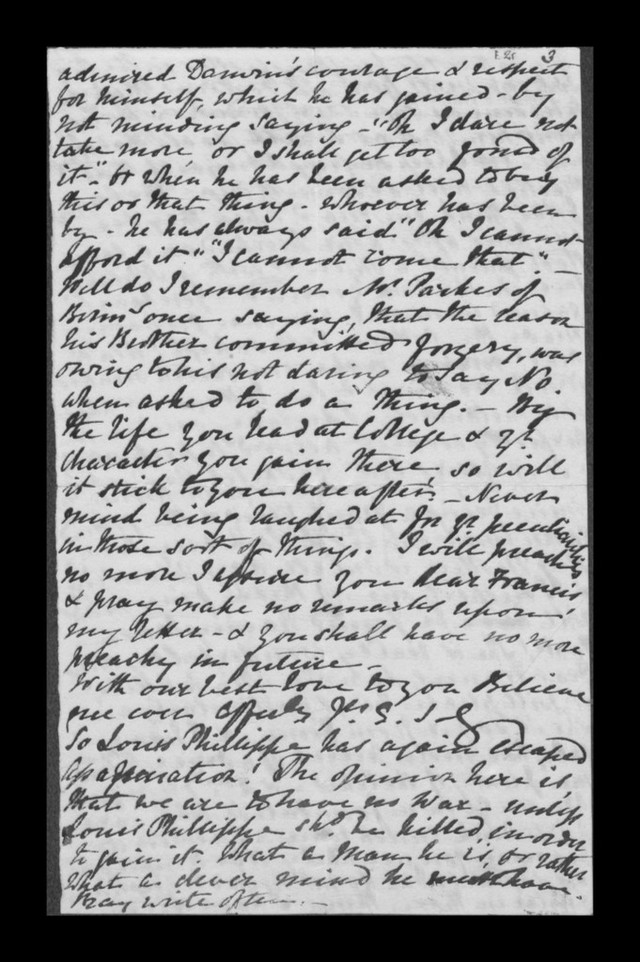 3
admired Darwin's courage & respect
for himself, which he has gained - by
not minding saying - "Oh I dare not
take more, or I shall get too fond of
it". Or when he has been asked to buy
this or that thing - whoever has been
by - he has always said "Oh I cannot
afford it" "I cannot come that" -
Well do I remember Mr. Parkes of
Birmm once saying, that the reason
his Brother committed forgery, was
owing to his not daring to say No
when asked to do a thing. - By
the life you lead at College & yr.
character you gain there, so will
it stick to you hereafter. - Never
mind being laughed at for yr peculiarities
in those sort of things. I will preach
no more I assure you dear Francis
& pray make no remarks upon
my letter - & you shall have no more
preachy in future -
With our best love to you Believe
me ever affecly yrs
So Louis Phillippe has again escaped
assassination! The opinion here is,
that we are to have no War - unless
Louis Phillippe shd. be killed, in order
to gain it. What a man he is, or rather
what a clever mind he must have.
Pray write often. -